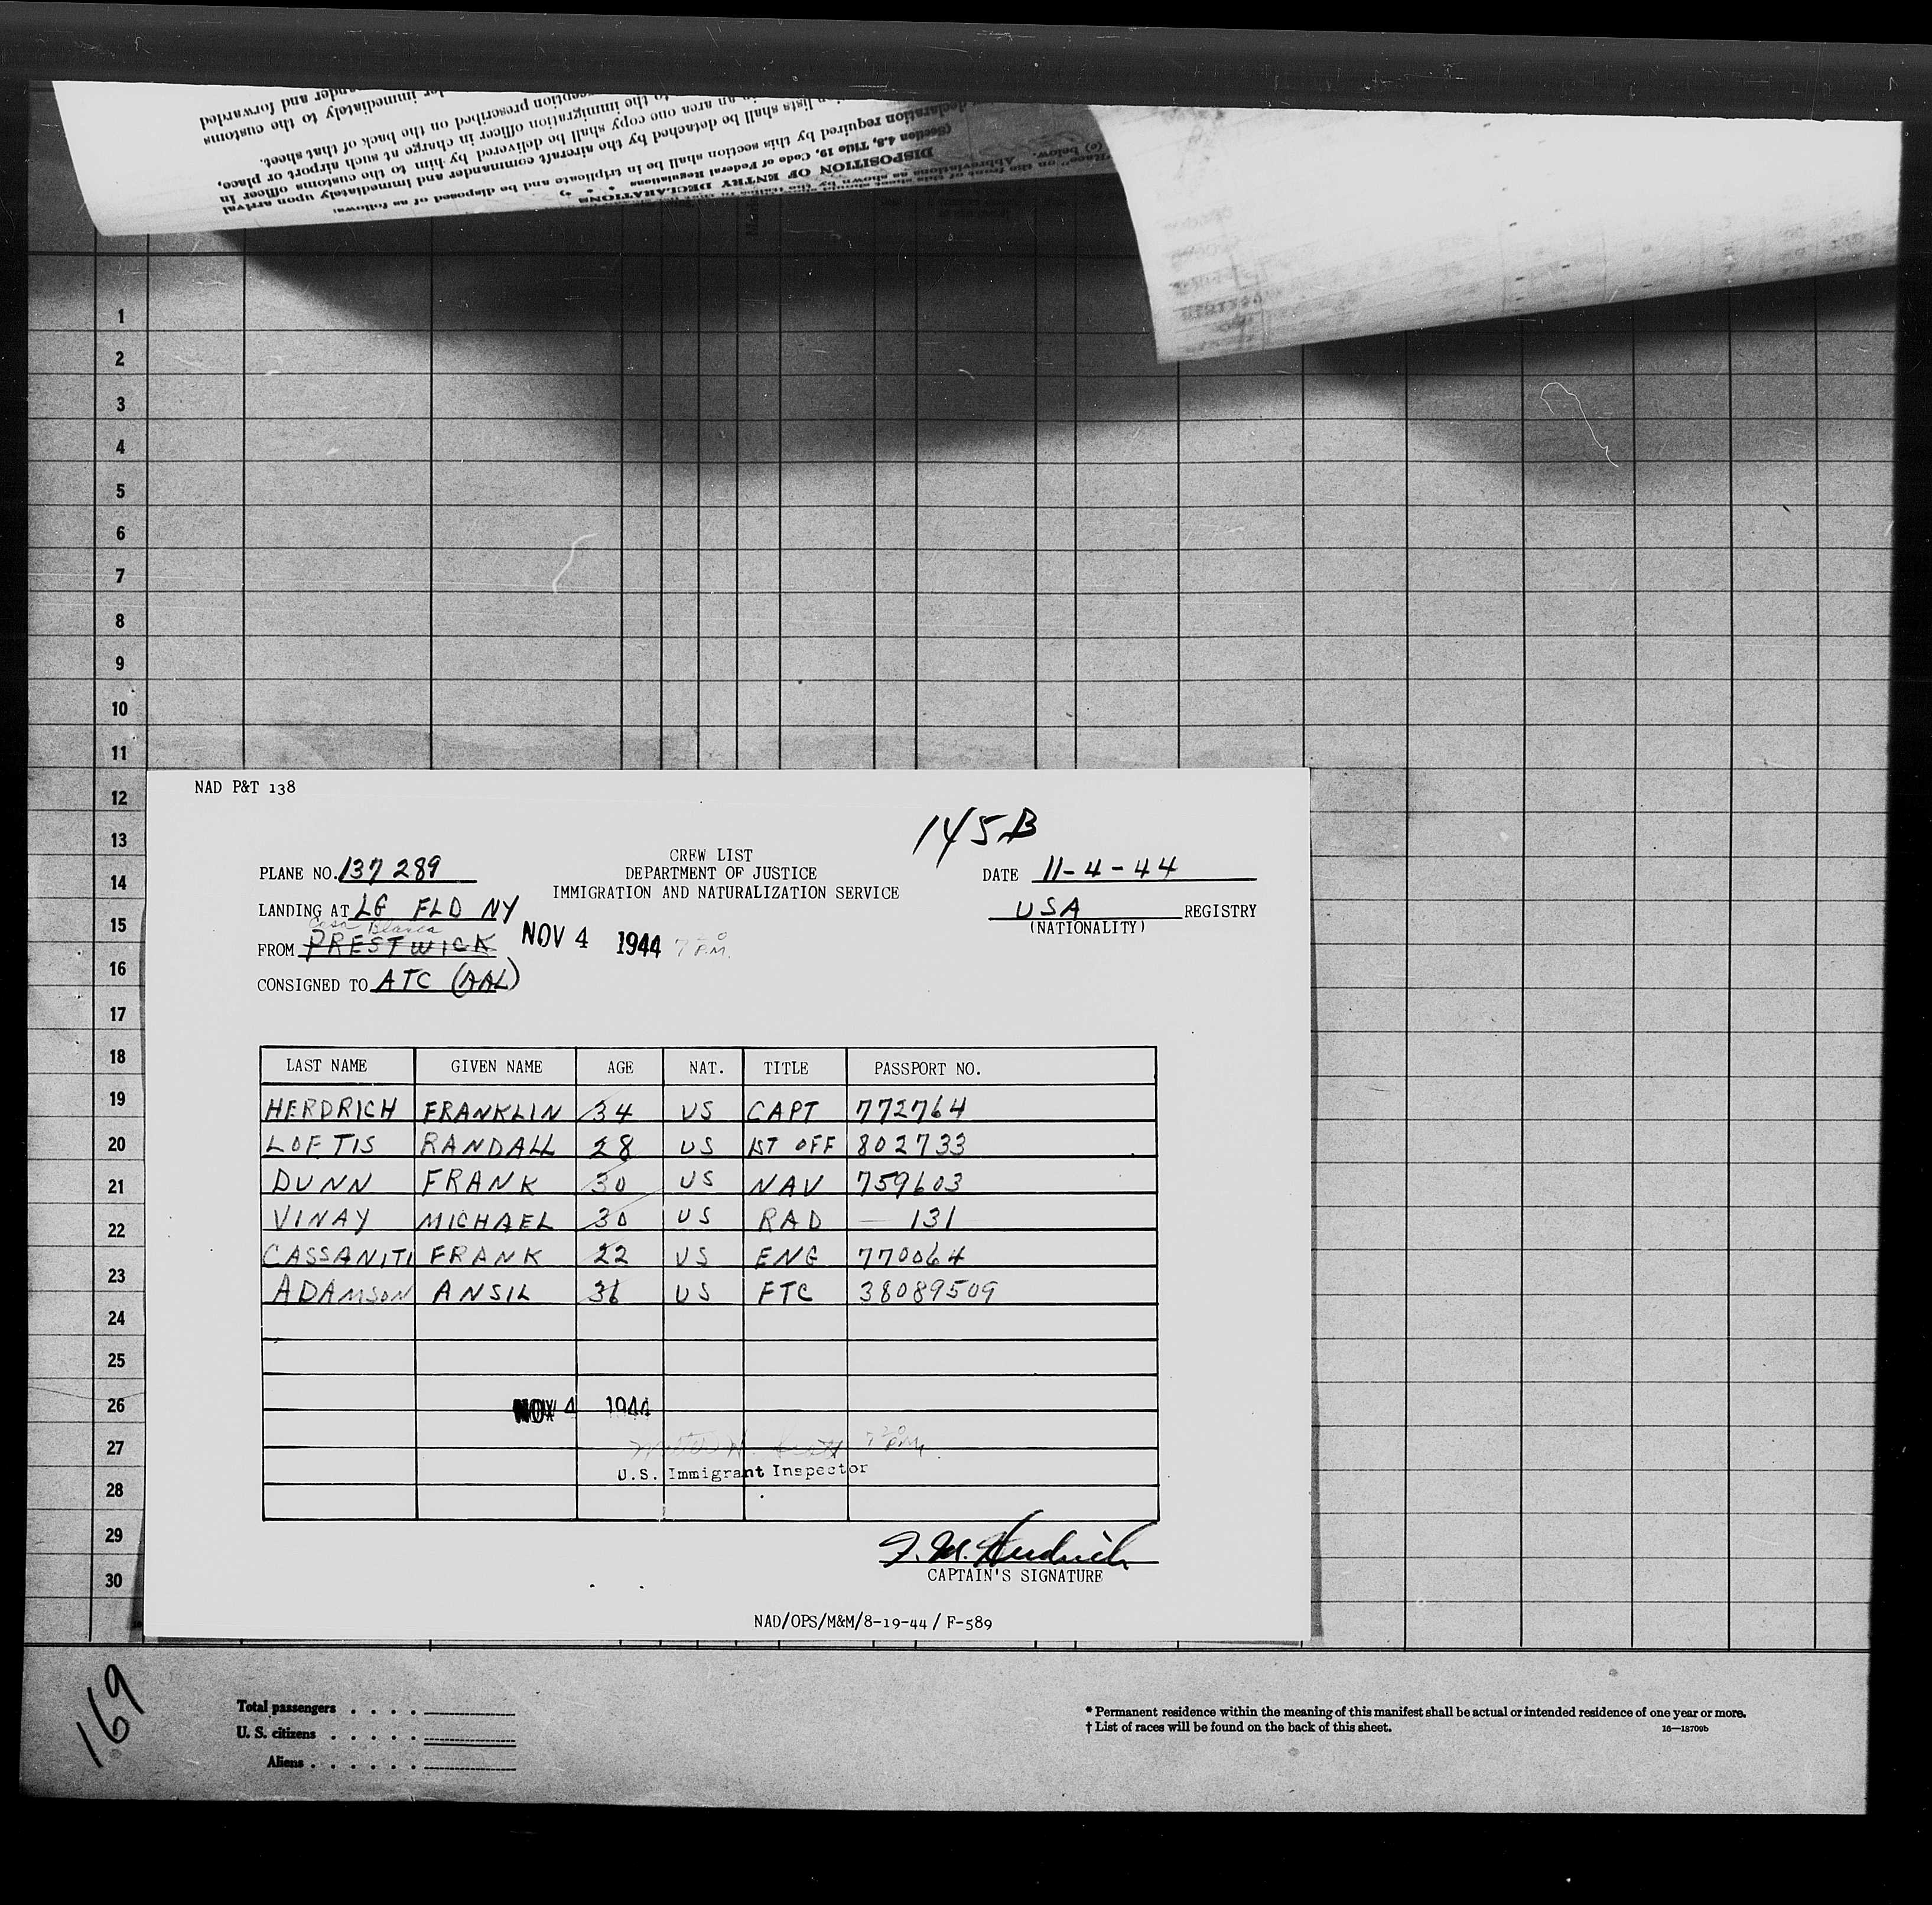 ander and forwarded
immediately to the customs
to the immigration officer in charge at such airport or place,
in an area one copy shall be delivered by him to the customs officer in
lists shall be detached by the aircraft commander and immediately upon arrival
declaration required by this section shall be in triplicate and be disposed of as follows:
(Section 4.8, Title 19, Code of Federal Regulations
DISPOSITION OF ENTRY DECLARATIONS
prescribed on the back of that sheet.
1
2
3
4
5
6
7
8
9
10
11
12
13
14
15
16
17
18
19
20
21
22
23
24
25
26
27
28
29
30
NAD P&T 138
145B
CREW LIST
DEPARTMENT OF JUSTICE
IMMIGRATION AND NATURALIZATION SERVICE
PLANE NO. 137289
DATE 11-4-44
LANDING AT LG FLD NY
USA REGISTRY
(NATIONALITY)
Casa Blanca
FROM PRESTWICK NOV 4 1944 7 20 P.M.
CONSIGNED TO ATC (AAL)
LAST NAME GIVEN NAME AGE NAT. TITLE PASSPORT NO.
HERDRICH FRANKLIN 34 US CAPT 772764
LOFTIS RANDALL 28 US 1ST OFF 802733
DUNN FRANK 30 US NAV 759603
VINAY MICHAEL 30 US RAD — 131
CASSANITI FRANK 22 US ENG 770064
ADAMSON ANSIL 36 US FTC 38089509
NOV 4 1944
U.S. Immigrant Inspector
F. M. Herdrich
CAPTAIN'S SIGNATURE
NAD/OPS/M&M/8-19-44/ F-589
169
Total passengers . . . .
U. S. citizens . . . . .
Aliens . . . . . .
* Permanent residence within the meaning of this manifest shall be actual or intended residence of one year or more.
† List of races will be found on the back of this sheet.
16—18709b